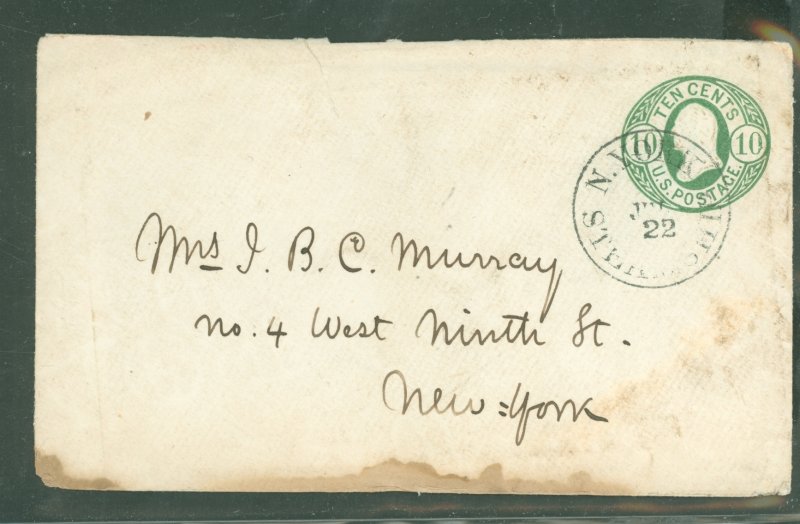 TEN CENTS
10 10
U.S. POSTAGE.
N. YORK STEAMSHIP
22
Mrs J. B. C. Murray
No. 4 West Ninth St.
New=York